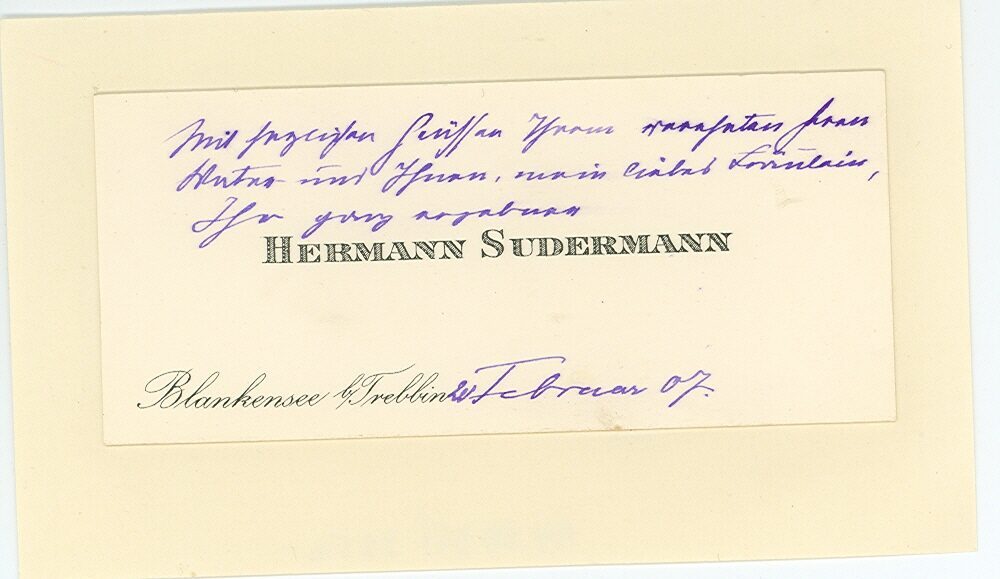 Mit herzlichen Grüssen Ihrem verehrten Herrn
Vater und Ihnen, mein liebes Fräulein,
Ihr ganz ergebener
HERMANN SUDERMANN
Blankensee b/Trebbin Februar 07.